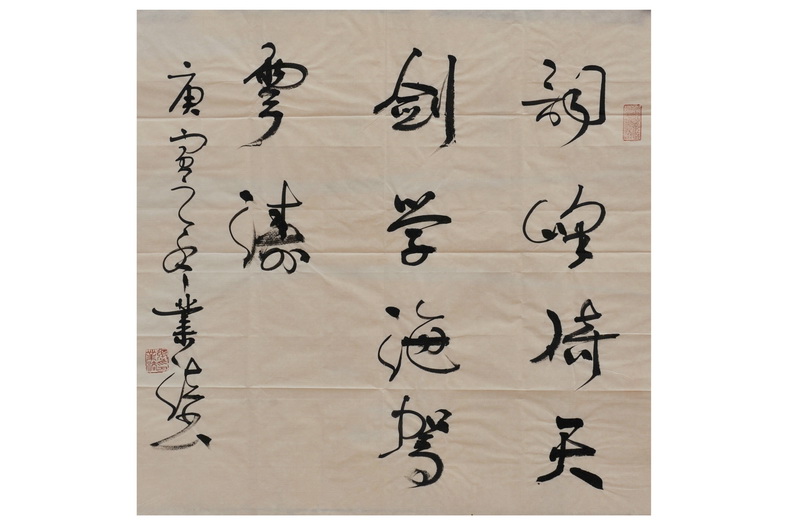 词峰倚天
剑学海驾
雲涛
庚寅之冬業